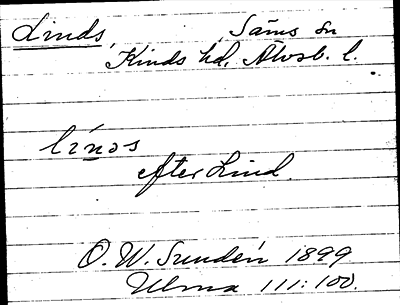 Linds, Säms sn
Kinds hd, Älvsb. l.
li̱nds
efter Lind.
O. W. Sundén 1899
Ulma 111:100.